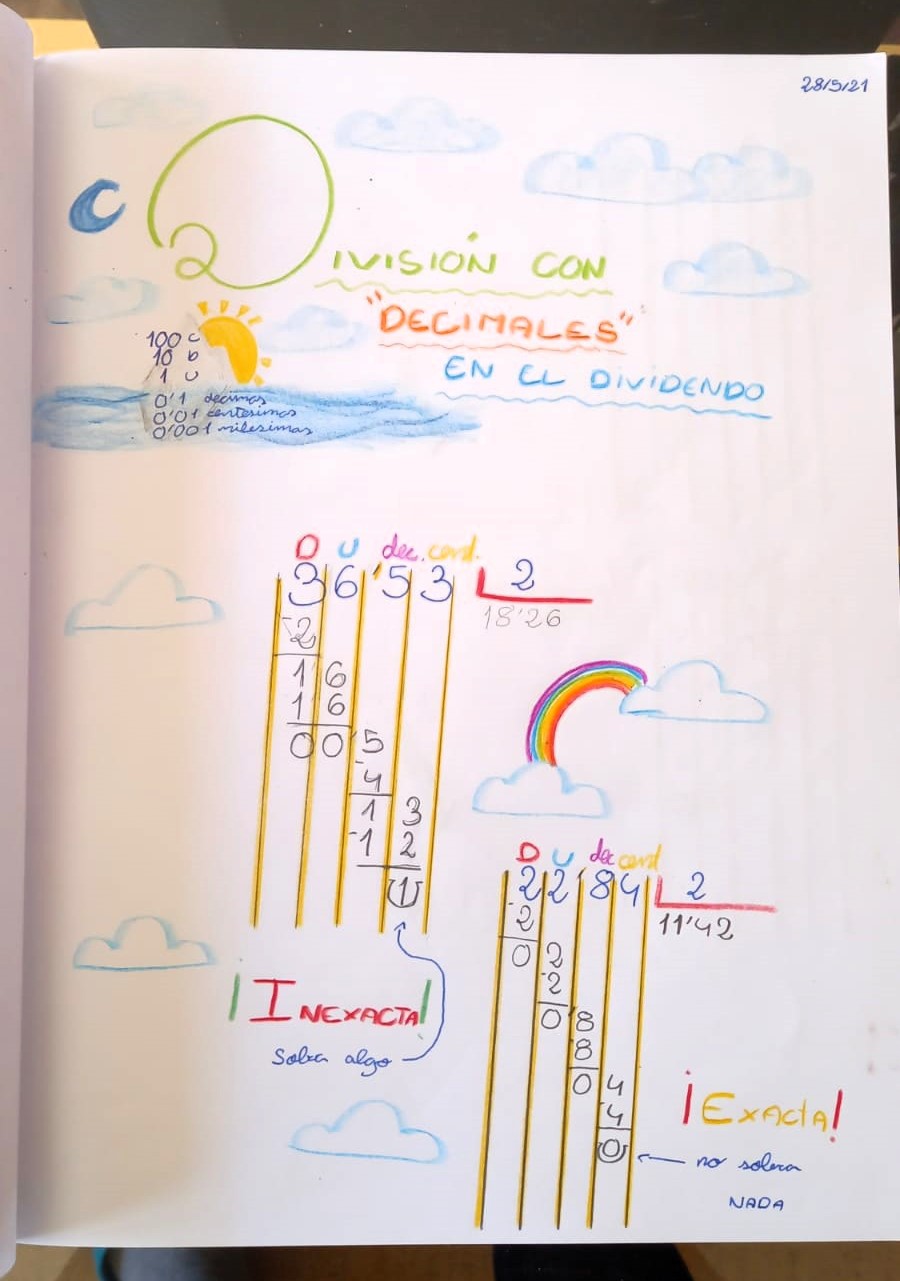 28/5/21
DIVISIÓN CON
"DECIMALES"
EN EL DIVIDENDO
100 c
10 D
1 U
0'1 décimas
0'01 centésimas
0'001 milésimas
D U dec. cent.
36'53 2
18'26
-2
16
16
00'5
4
1 3
-1 2
(1)
¡INEXACTA!
Sobra algo
D U dec cent
22'84 2
11'42
-2
0 2
-2
0 8
-8
0 4
-4
(0)
¡EXACTA!
no sobra
NADA